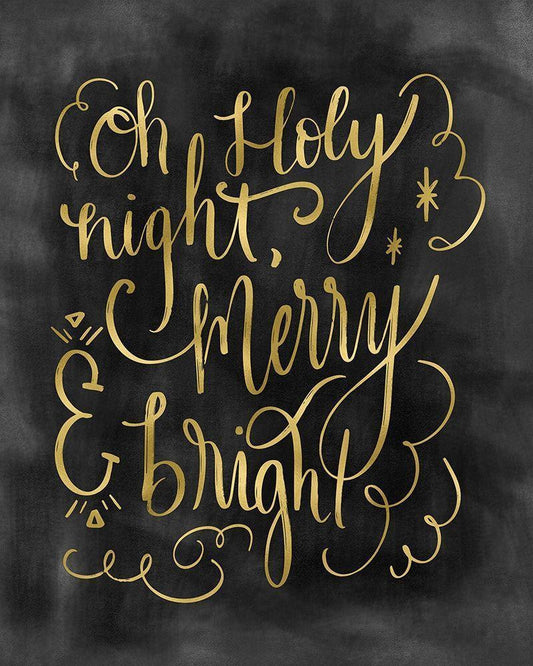 Oh Holy
night,
Merry
& bright